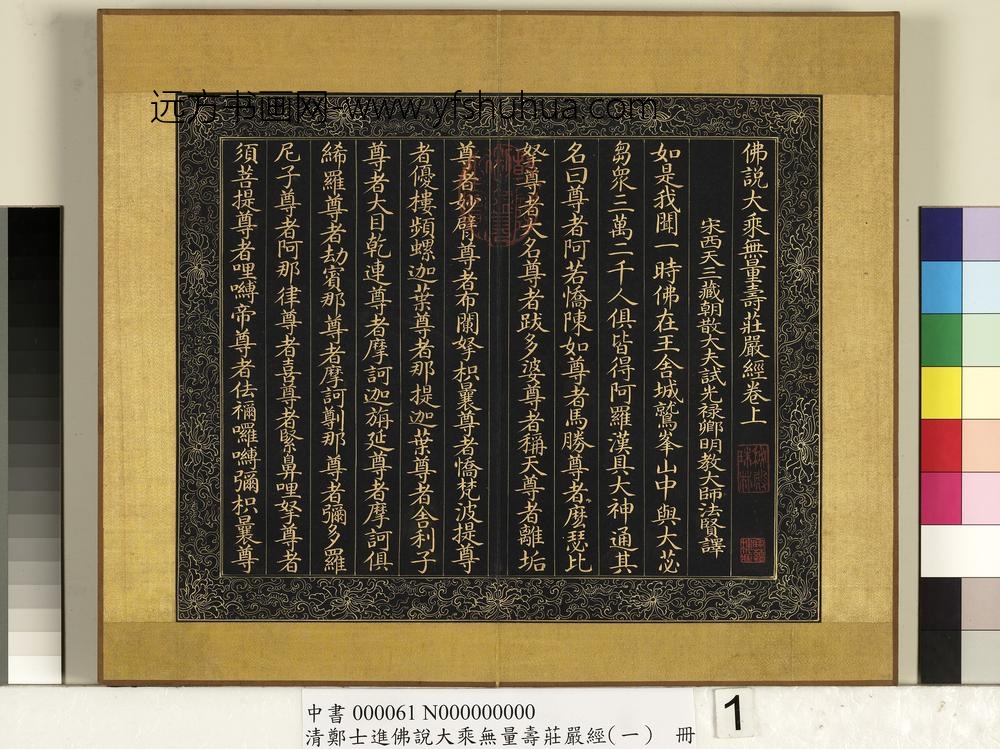 远方书画网 www.yfshuhua.com
佛說大乘無量壽莊嚴經卷上
宋西天三藏朝散大夫試光祿卿明教大師法賢譯
如是我聞一時佛在王舍城鷲峯山中與大苾
芻眾三萬二千人俱皆得阿羅漢具大神通其
名曰尊者阿若憍陳如尊者馬勝尊者麼瑟比
拏尊者大名尊者跋多婆尊者稱天尊者離垢
尊者妙臂尊者布闌拏枳曩尊者憍梵波提尊
者優樓頻螺迦葉尊者那提迦葉尊者舍利子
尊者大目乾連尊者摩訶迦旃延尊者摩訶俱
絺羅尊者劫賓那尊者摩訶那尊者彌多羅
尼子尊者阿那律尊者喜尊者緊鼻哩拏尊者
須菩提尊者哩嚩帝尊者佉禰囉嚩彌枳曩尊
中書 000061 N000000000
清鄭士進佛說大乘無量壽莊嚴經(一) 冊
1